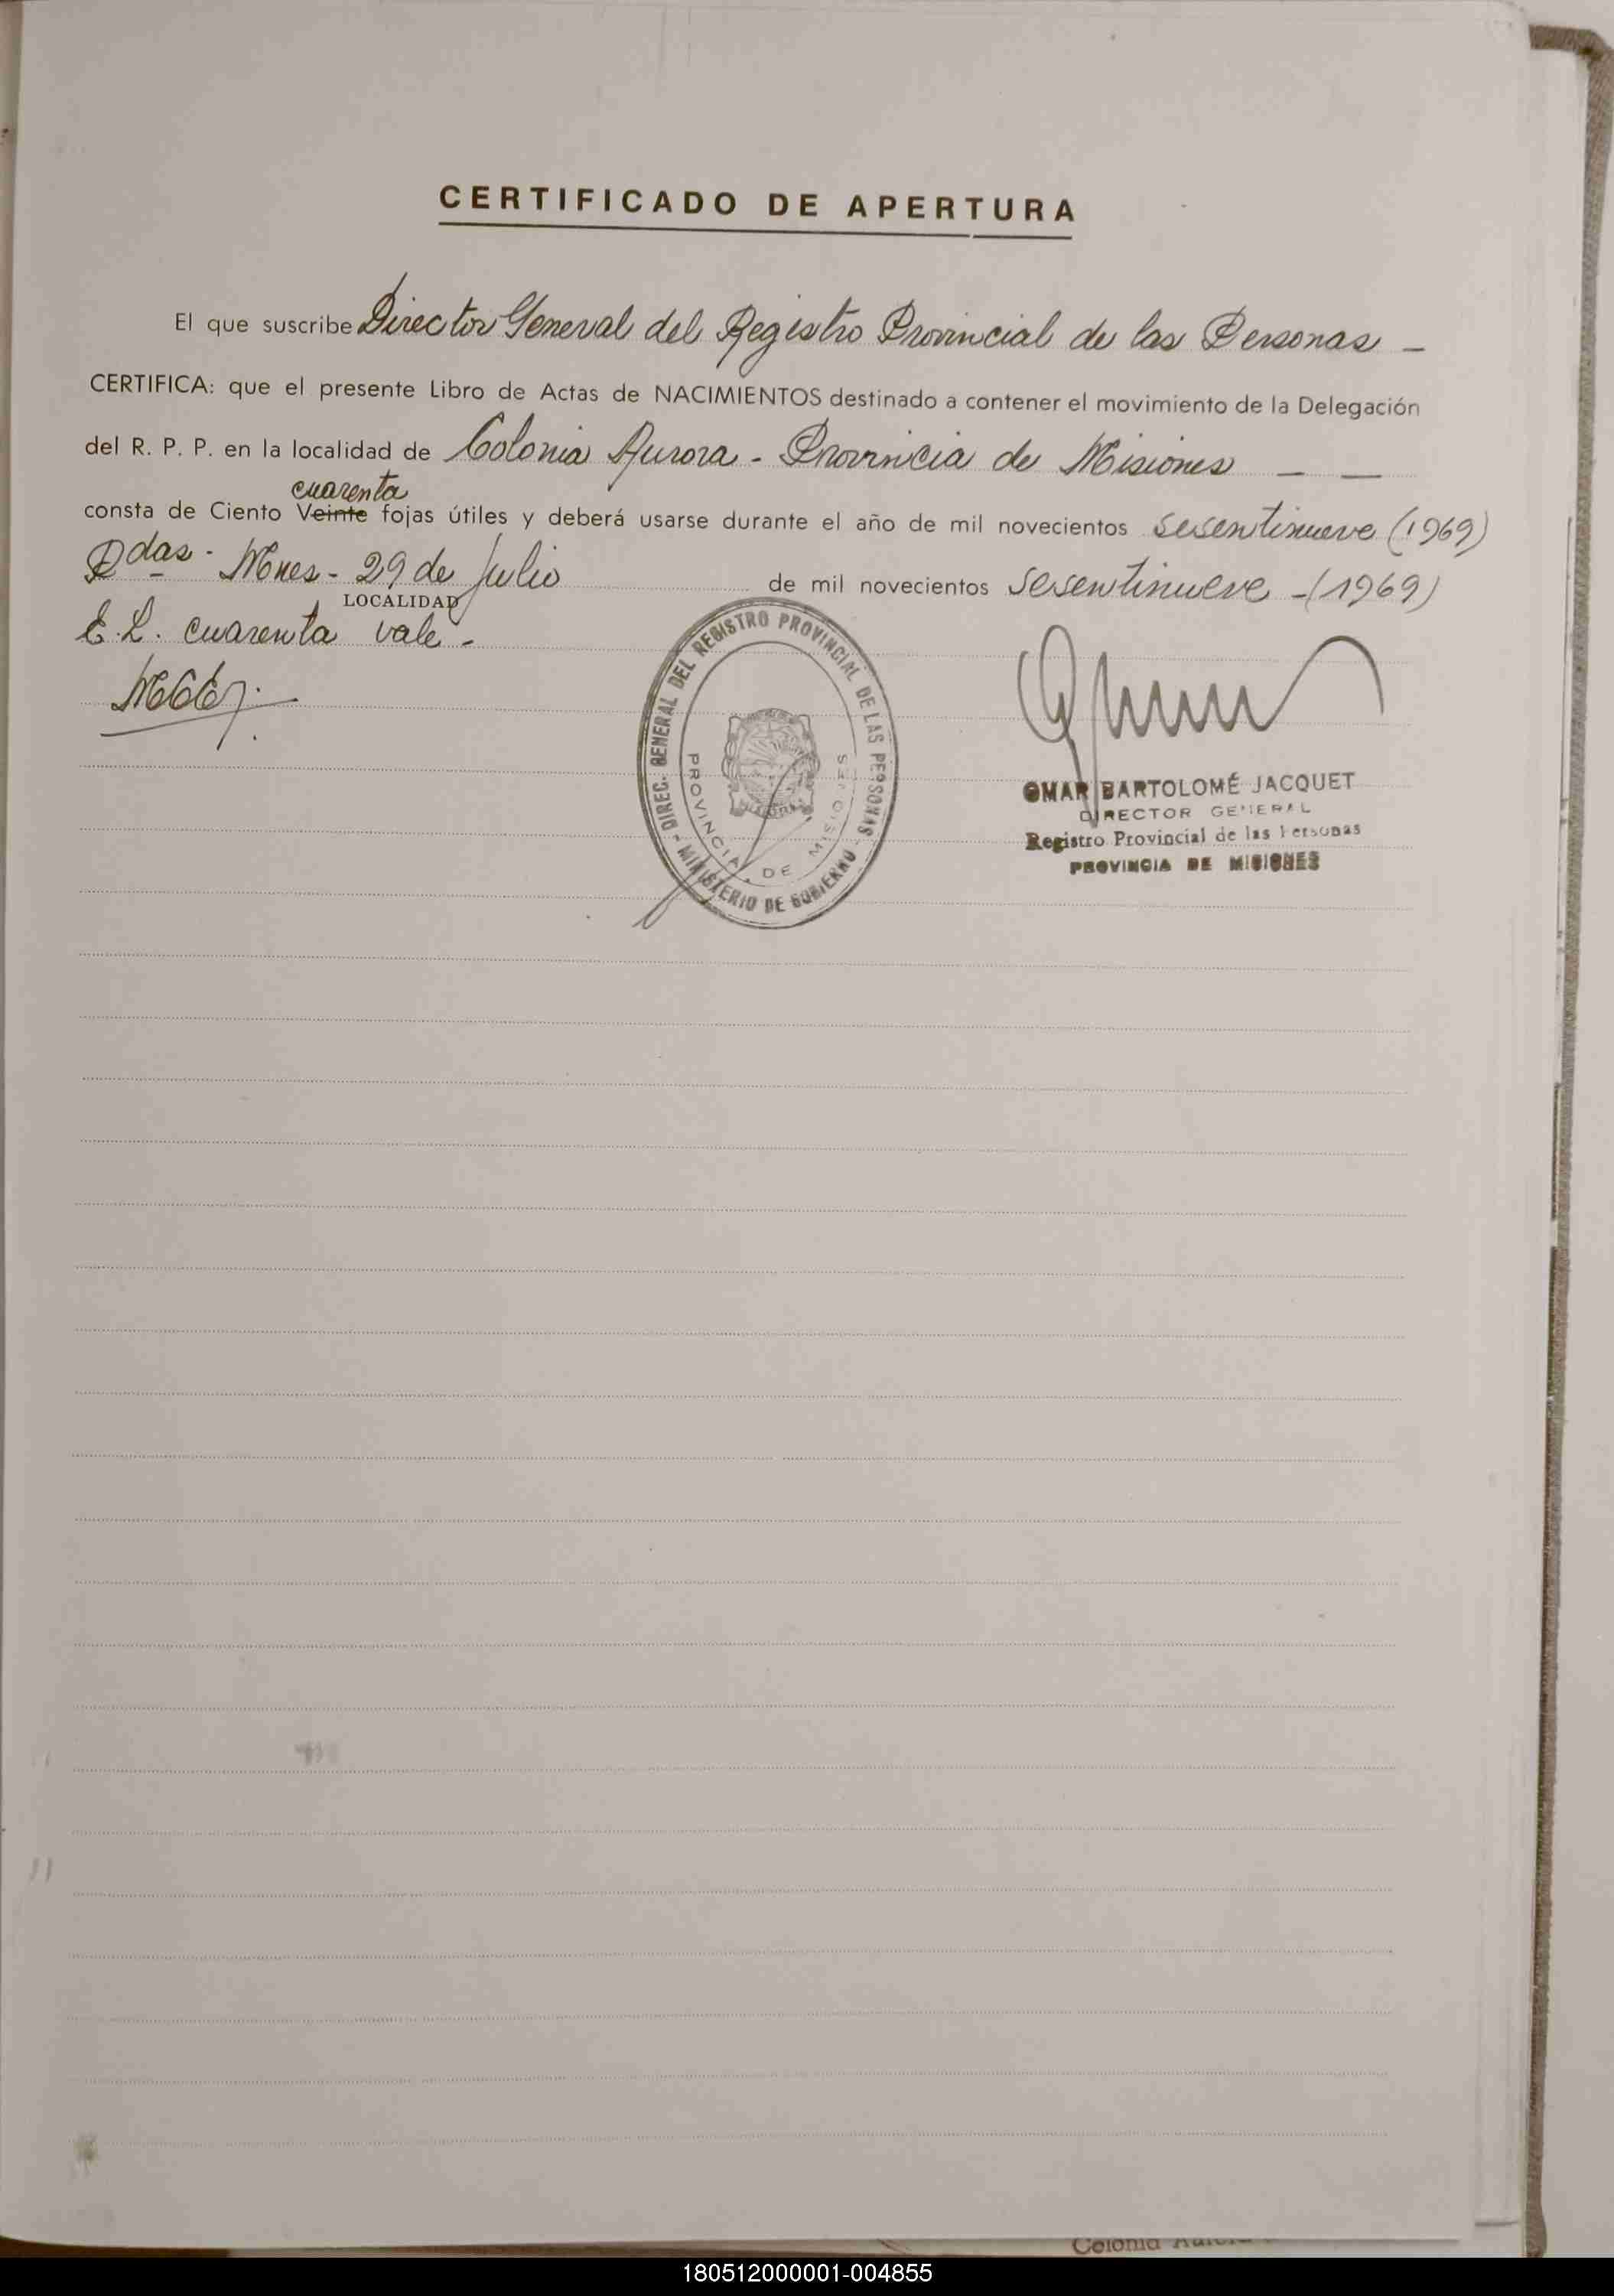 CERTIFICADO DE APERTURA
El que suscribe Director General del Registro Provincial de las Personas -
CERTIFICA: que el presente Libro de Actas de NACIMIENTOS destinado a contener el movimiento de la Delegación
del R. P. P. en la localidad de Colonia Aurora - Provincia de Misiones - -
cuarenta
consta de Ciento Veinte fojas útiles y deberá usarse durante el año de mil novecientos sesentinueve (1969)
Pdas - Mnes - 29 de Julio de mil novecientos sesentinueve - (1969)
LOCALIDAD
E.L. cuarenta vale -
DIREC. GENERAL DEL REGISTRO PROVINCIAL DE LAS PERSONAS - MINISTERIO DE GOBIERNO -
PROVINCIA DE MISIONES
OMAR BARTOLOMÉ JACQUET
DIRECTOR GENERAL
Registro Provincial de las Personas
PROVINCIA DE MISIONES
Colonia Aurora
180512000001-004855